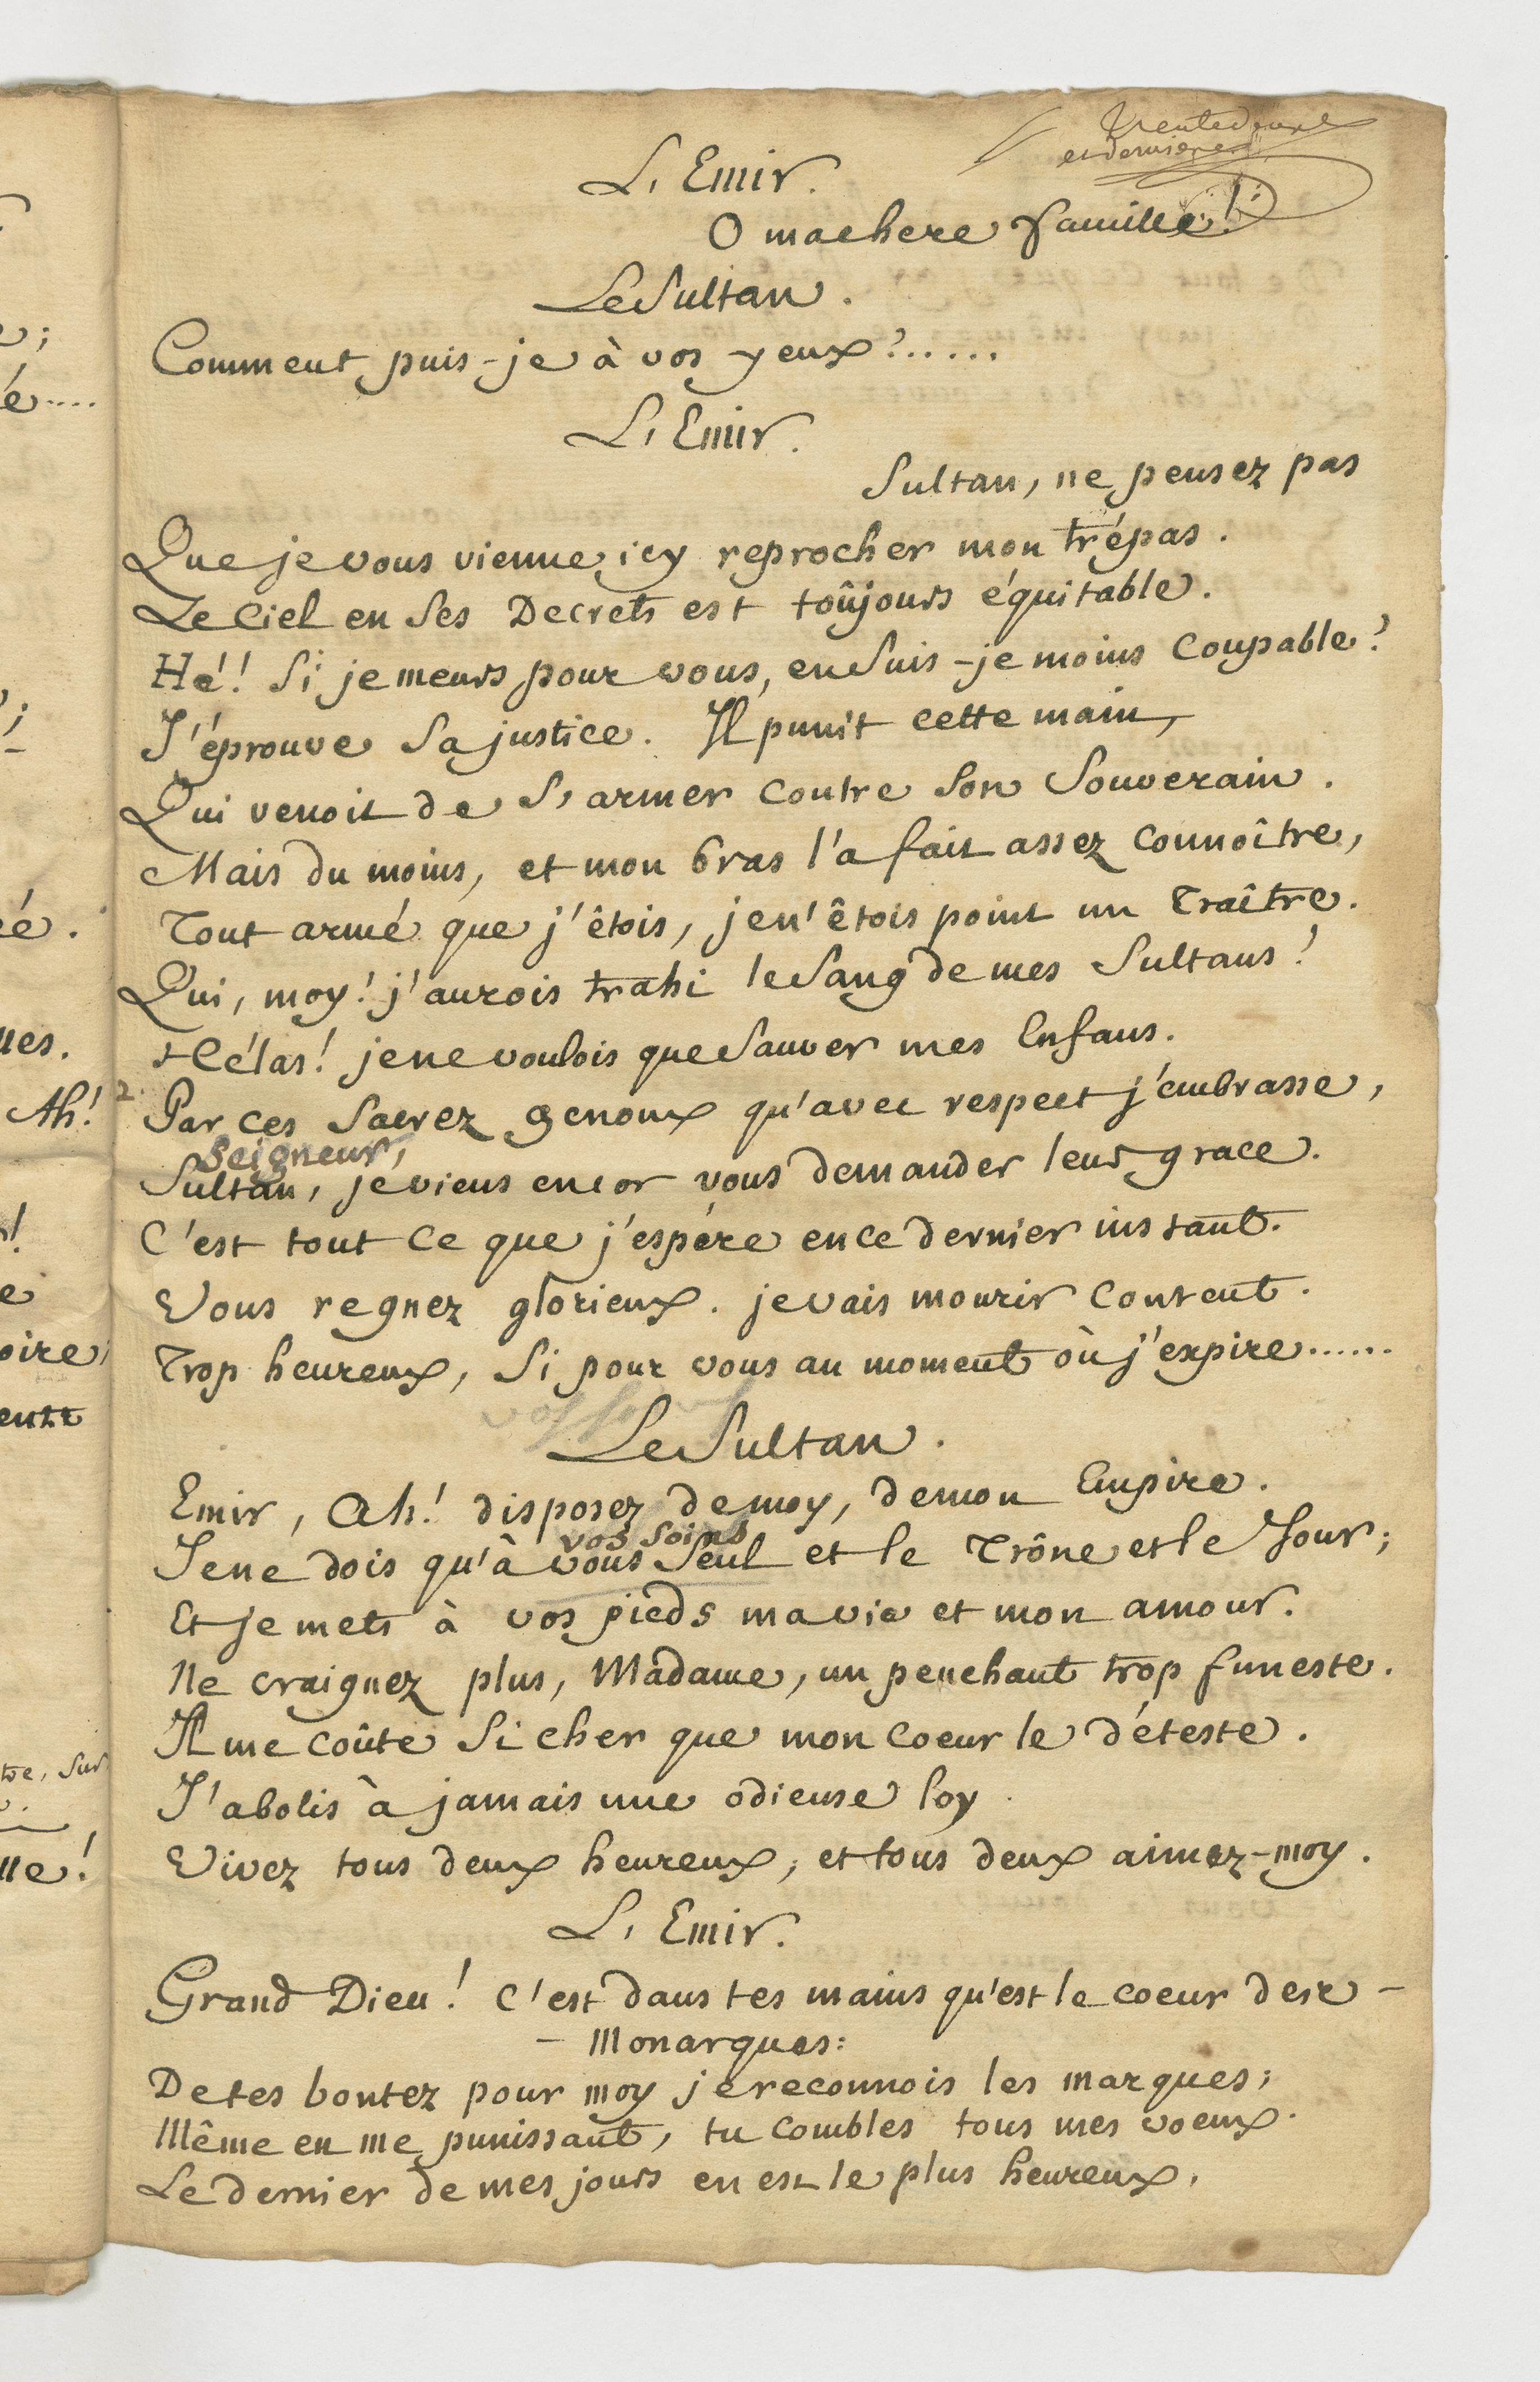 trente deuxe
et derniere
L'Emir.
O ma chere famille!
Le Sultan.
Comment puis-je à vos yeux?......
L'Emir.
Sultan, ne pensez pas
Que je vous vienne icy reprocher mon trépas.
Le Ciel en ses Decrets est toûjours équitable.
Hé! Si je meurs pour vous, en suis-je moins Coupable?
J'éprouve sa justice. Il punit cette main,
Qui venoit de s'armer contre son Souverain.
Mais du moins, et mon bras l'a fait assez connoître,
Tout armé que j'êtois, je n'êtois point un Traître.
Qui, moy! j'aurois trahi le sang de mes Sultans!
Hélas! je ne voulois que sauver mes Enfans.
2. Par ces sacrez genoux qu'avec respect j'embrasse,
Seigneur,
Sultan, je viens encor vous demander leur grace.
C'est tout ce que j'espére en ce dernier instant.
Vous regnez glorieux. je vais mourir content.
Trop heureux, si pour vous au moment où j'expire......
Le Sultan.
Emir, Ah! disposez de moy, de mon Empire.
vos soins
Je ne dois qu'à vous seul et le Trône et le Jour;
Et je mets à vos pieds ma vie et mon amour.
Ne craignez plus, Madame, un penchant trop funeste.
Il me coûte si cher que mon coeur le déteste.
J'abolis à jamais une odieuse loy.
Vivez tous deux heureux, et tous deux aimez-moy.
L'Emir.
Grand Dieu! C'est dans tes mains qu'est le coeur des -
- Monarques:
De tes bontez pour moy je reconnois les marques;
Même en me punissant, tu combles tous mes voeux.
Le dernier de mes jours en est le plus heureux.